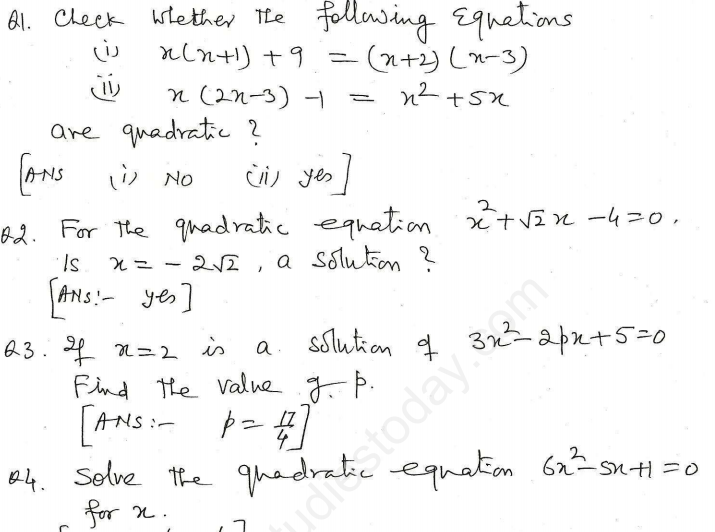 Q1. Check whether the following Equations
(i) x(x+1) + 9 = (x+2) (x-3)
(ii) x (2x-3) -1 = x² +5x
are quadratic ?
[ANS (i) NO (ii) yes]
Q2. For the quadratic equation x²+√2 x -4=0.
Is x = - 2√2 , a solution ?
[ANS:- yes]
Q3. If x=2 is a solution of 3x²-2px+5=0
Find the value of p.
[ANS:- p = 17/4]
Q4. Solve the quadratic equation 6x²-5x+1=0
for x.
studiestoday.com